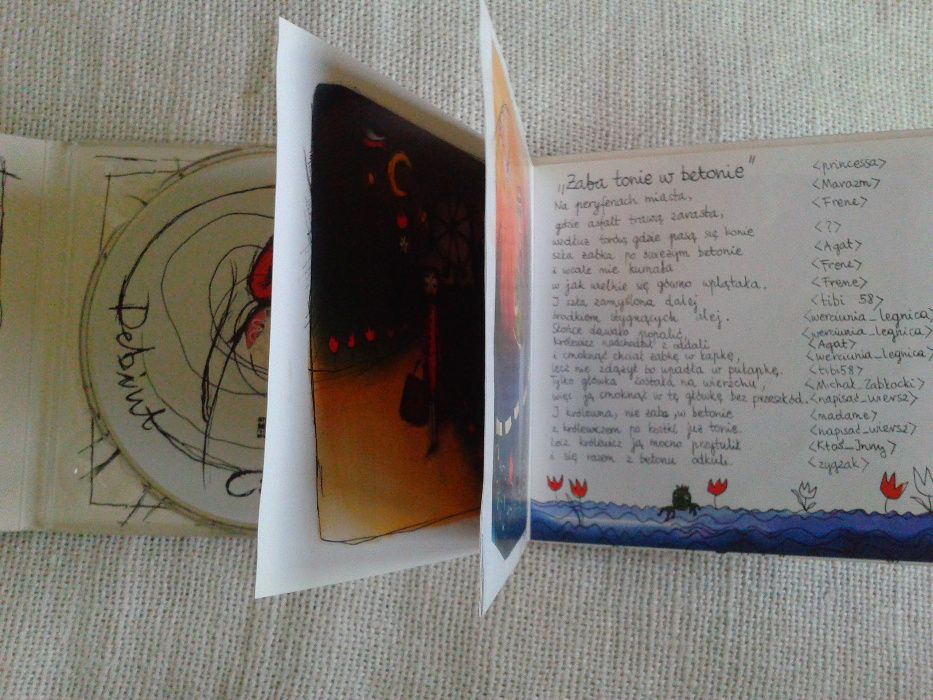 Debiut
„Żaba tonie w betonie"
Na peryferiach miasta,
gdzie asfalt trawą zarasta,
wzdłuż torów gdzie pasą się konie
szła żabka po świeżym betonie
i wcale nie kumała
w jak wielkie się gówno wplątała.
I szła zamyślona dalej
środkiem stygnących alej.
Słońce dawało popalić,
królewicz nadchodził z oddali
i cmoknąć chciał żabkę w łapkę,
lecz nie zdążył bo wpadła w pułapkę.
Tylko główka została na wierzchu,
więc ją cmoknął w tę główkę bez przeszkód.
I królewna, nie żaba, w betonie
z królewiczem po kostki już tonie.
Lecz królewicz ją mocno przytulił
i się razem z betonu odkuli.
<princessa>
<Marazm>
<Frene>
<?>
<Agat>
<Frene>
<Freme>
<tibi 58>
<werciunia_legnica>
<werciunia_legnica>
<Agat>
<werciunia_legnica>
<tibi58>
<Michał_Zabłocki>
<napisać_wiersz>
<madame>
<napisać_wiersz>
<Ktoś_Inny>
<zygzak>